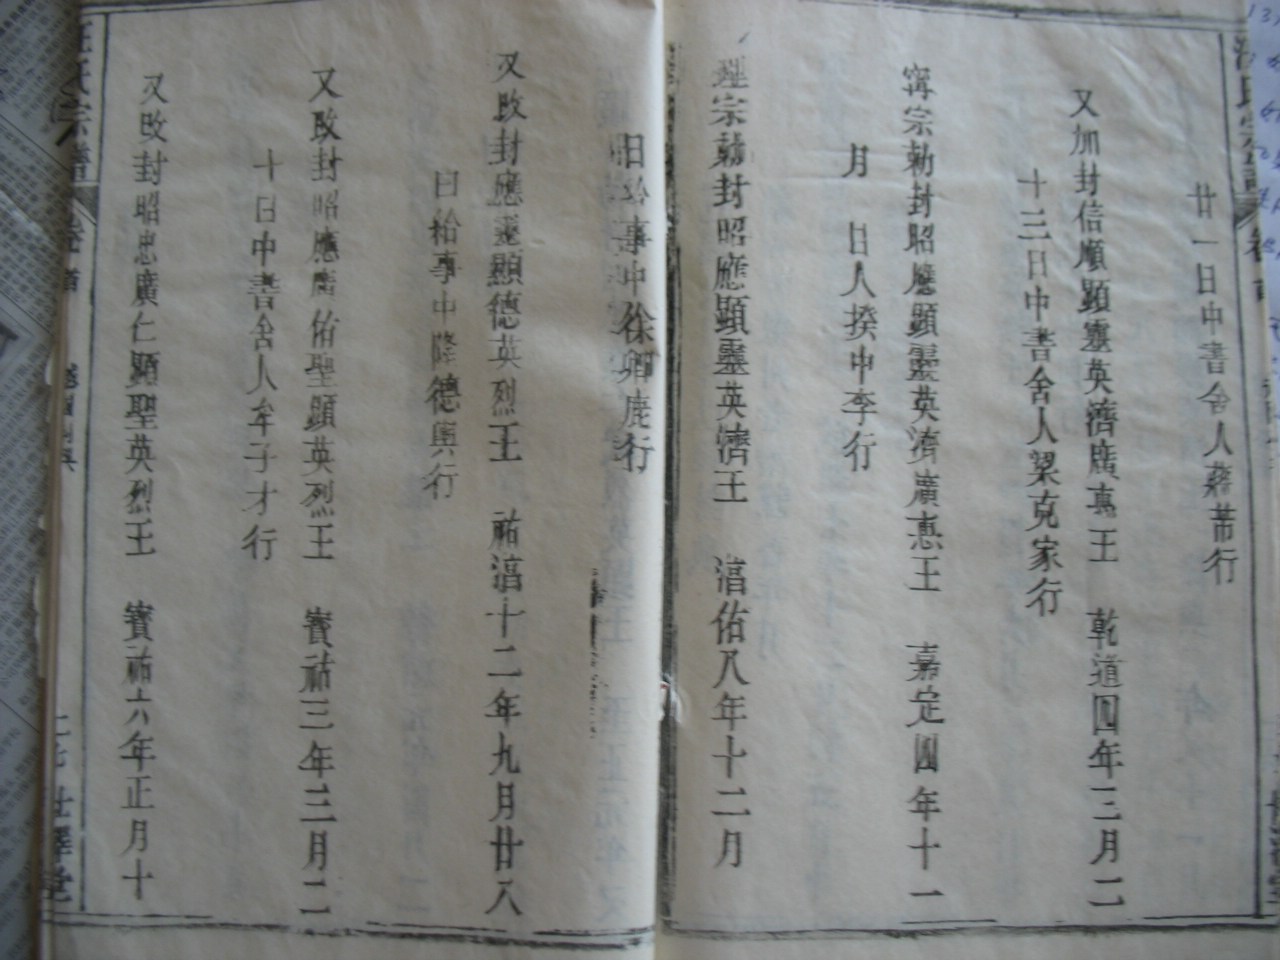 廿一日中書舍人蔣芾行
又加封信順顯靈英濟廣惠王 乾道四年三月二
十三日中書舍人梁克家行
寧宗勅封昭應顯靈英濟廣惠王 嘉定四年十一
月 日人揆中李行
理宗勅封昭應顯靈英濟王 淳佑八年十二月
日 事中徐卿鹿行
又改封應靈顯德英烈王 祐淳十二年九月廿八
日給事中隆德輿行
又改封昭應廣佑聖顯英烈王 寶祐三年三月二
十日中書舍人牟子才行
又改封昭忠廣仁顯聖英烈王 寶祐六年正月十
汪氏宗譜 卷首 世澤堂